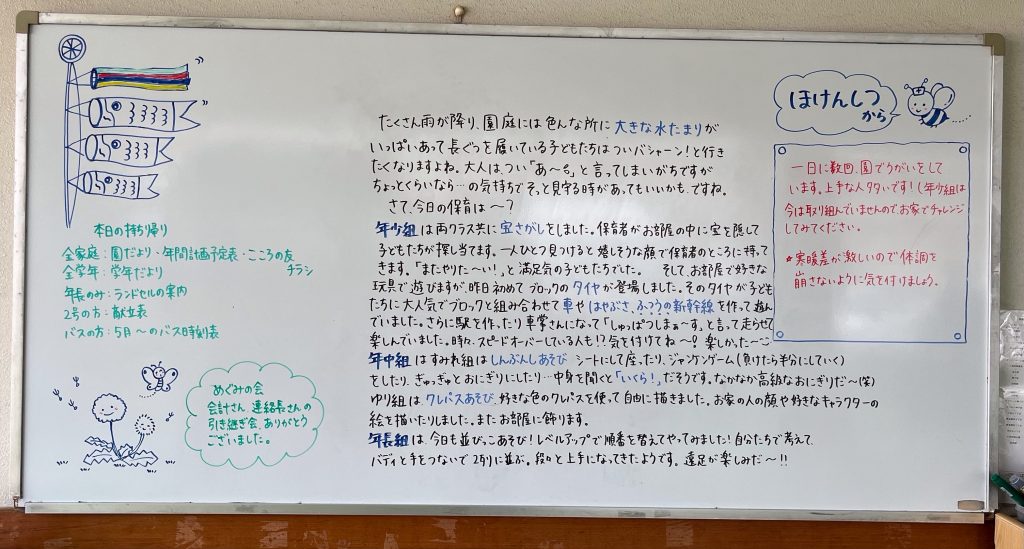 本日の持ち帰り
全家庭：園だより・年間計画予定表・こころの友
チラシ
全学年：学年だより
年長のみ：ランドセルの案内
2号の方：献立表
バスの方：5月〜のバス時刻表
めぐみの会
会計さん、連絡長さんの
引き継ぎ会、ありがとう
ございました。
たくさん雨が降り、園庭には色んな所に大きな水たまりが
いっぱいあって長ぐつを履いている子どもたちはついバシャーン！と行き
たくなりますよね。大人は、つい「あ〜っ」と言ってしまいがちですが
ちょっとくらいなら…の気持ちでそっと見守る時があってもいいかも、ですね。
さて、今日の保育は〜？
年少組は両クラス共に宝さがしをしました。保育者がお部屋の中に宝を隠して
子どもたちが探し当てます。一人ひとつ見つけると嬉しそうな顔で保育者のところに持って
きます。「またやりた〜い！」と満足気の子どもたちでした。 そして、お部屋で好きな
玩具で遊びますが、昨日初めてブロックのタイヤが登場しました。そのタイヤが子ども
たちに大人気でブロックと組み合わせて車やはやぶさ、ふつうの新幹線を作って遊ん
でいました。さらに駅を作ったり車掌さんになって「しゅっぱつしまぁーす」と言って走らせて
楽しんでいました。時々、スピードオーバーしている人も!?気を付けてね〜♡楽しかった〜
年中組はすみれ組はしんぶんしあそび シートにして座ったり、ジャンケンゲーム(負けたら半分にしていく)
をしたり、ぎゅっぎゅとおにぎりにしたり…中身を聞くと「いくら！」だそうです。なかなか高級なおにぎりだ〜(笑)
ゆり組はクレパスあそび 好きな色のクレパスを使って自由に描きました。お家の人の顔や好きなキャラクターの
絵を描いたりしました。またお部屋に飾ります。
年長組は、今日も並びっこあそび！レベルアップで順番を替えてやってみました！自分たちで考えて、
バディと手をつないで2列に並ぶ。段々と上手になってきたようです。遠足が楽しみだ〜!!
ほけんしつ
から
一日に数回、園でうがいをして
います。上手な人タタいです！(年少組は
今は取り組んでいませんのでお家でチャレンジ
してみてください。
★寒暖差が激しいので体調を
崩さないように気を付けましょう。